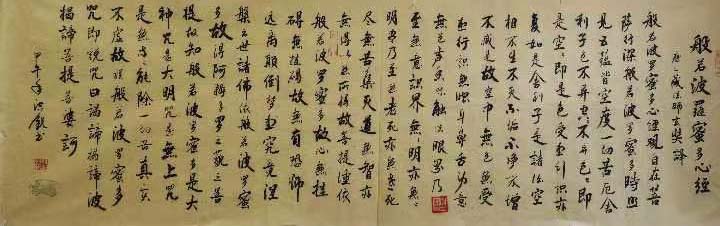 般若波羅蜜多心經
唐三藏法師玄奘譯
般若波罗蜜多心經觀自在菩
薩行深般若波罗蜜多時照
見五蘊皆空度一切苦厄舍
利子色不异空空不异色色即
是空空即是色受想行識亦
复如是舍利子是諸法空
相不生不灭不垢不净不增
不减是故空中無色無受
想行識無眼耳鼻舌身意
無色声香味触法無眼界乃
至無意識界無無明亦無無
明尽乃至無老死亦無老死
尽無苦集灭道無智亦
無得以無所得故菩提薩埵依
般若波罗蜜多故心無挂
碍無挂碍故無有恐怖
远離顛倒梦想究竟涅
槃三世諸佛依般若波罗蜜
多故得阿耨多罗三藐三菩
提故知般若波罗蜜多是大
神咒是大明咒是無上咒
是無等等咒能除一切苦真实
不虚故說般若波罗蜜多
咒即說咒曰揭諦揭諦波
揭諦菩提薩婆訶
甲午年